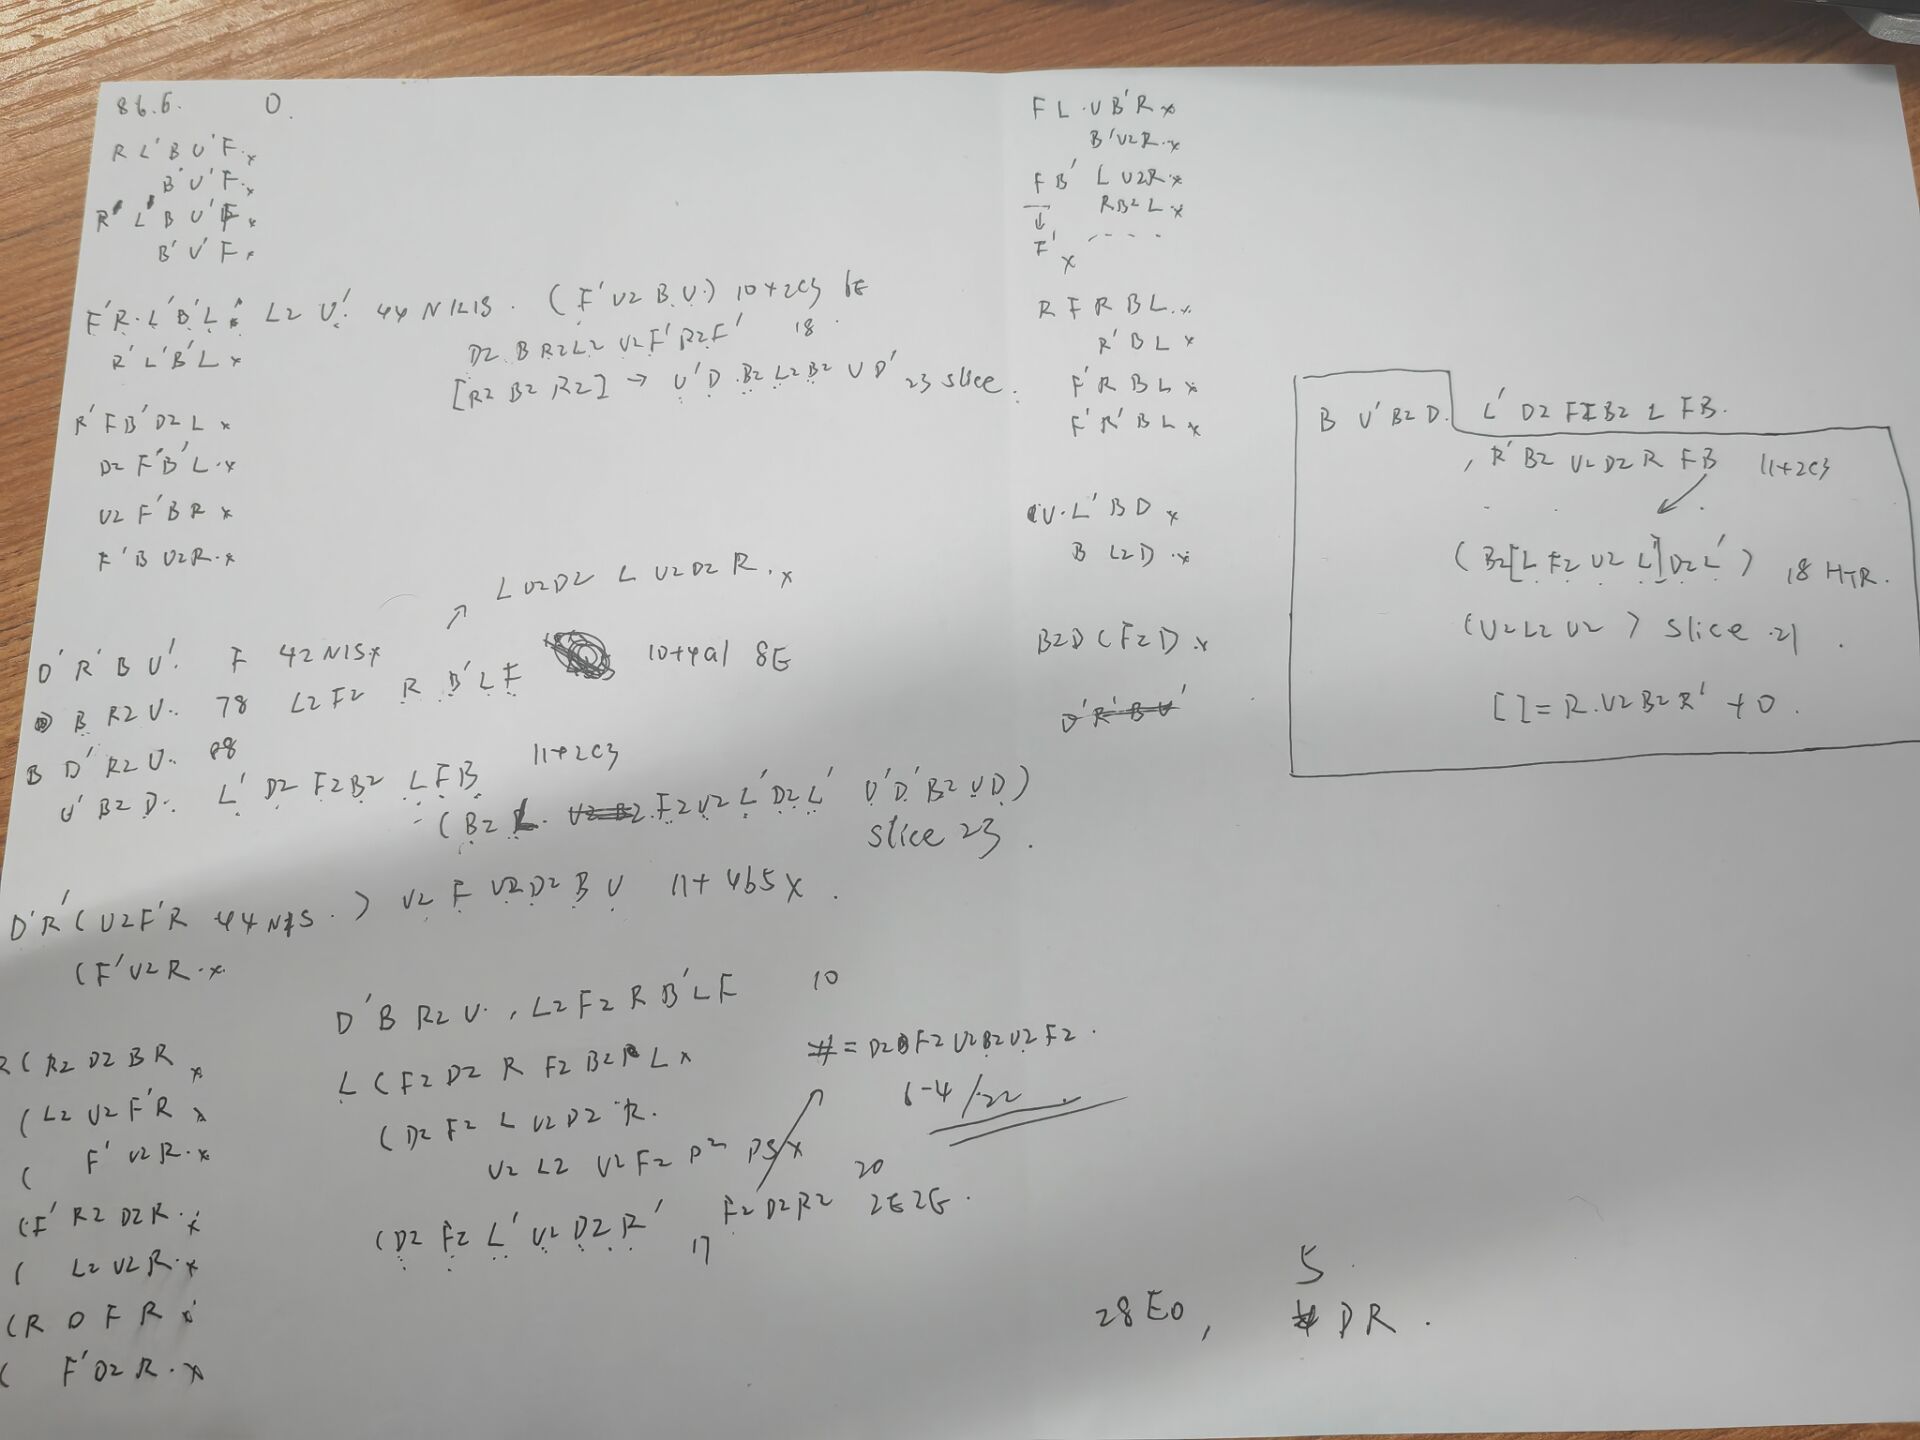 86.6. 0.
R L' B U' F. x
B' U' F. x
L' B U' F x
B' U' F x
F' R. L' B' L L2 U'. 44 NISS. (F' U2 B U.) 10+2C3 6E
D2 B R2 L2 U2 F' R2 F' 18.
[R2 B2 R2] → U' D B2 L2 B2 U D' 23 slice.
R' L' B' L x
R' F B' D2 L x
D2 F' B' L. x
U2 F' B R x
F' B U2 R. x
L U2 D2 L U2 D2 R. x
D' R' B U'. F 42 NISS x
B R2 U.. 78 L2 F2 R B' L F 10+4a1 8E
B D' R2 U..
U' B2 D. L' D2 F2 B2 L F B 11+2C3
(B2 L. F2 U2 L' D2 L' U' D' B2 U D)
slice 23.
D' R' (U2 F' R 44 NISS.) U2 F U2 D2 B U 11+4b5 x.
(F' U2 R. x
D' B R2 U., L2 F2 R B' L F 10
R (R2 D2 B R x
(L2 U2 F' R x
( F' U2 R. x
(F' R2 D2 R. x
( L2 U2 R. x
(R D F R x
( F' D2 R. x
L (F2 D2 R F2 B2 R L x
(D2 F2 L U2 D2 R.
U2 L2 U2 F2 D2 x
(D2 F2 L' U2 D2 R' 17 F2 D2 R2 20 2E2E.
# = D2 F2 U2 B2 U2 F2.
6-4/22
F L. U B' R x
B' U2 R. x
F B' L U2 R. x
R B2 L x
↓
F' x - - - -
R F R B L. x
R' B L x
F' R B L x
F' R' B L x
U. L' B D x
B L2 D. x
B2 D (F2 D. x
D' R' B U'
B U' B2 D. L' D2 F2 B2 L F B.
, R' B2 U2 D2 R F B 11+2C3
(B2 [L F2 U2 L'] D2 L') 18 HTR.
(U2 L2 U2) slice 21.
[ ] = R. U2 B2 R' +0.
28 E0, 5
DR.